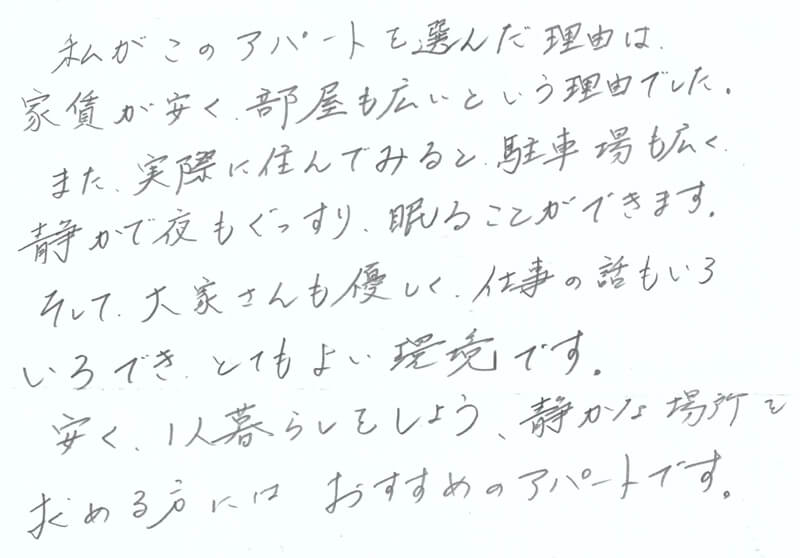 私がこのアパートを選んだ理由は、
家賃が安く、部屋も広いという理由でした。
また、実際に住んでみると、駐車場も広く、
静かで夜もぐっすり、眠ることができます。
そして、大家さんも優しく、仕事の話もいろ
いろでき、とてもよい環境です。
安く、1人暮らしをしよう、静かな場所を
求める方には おすすめのアパートです。